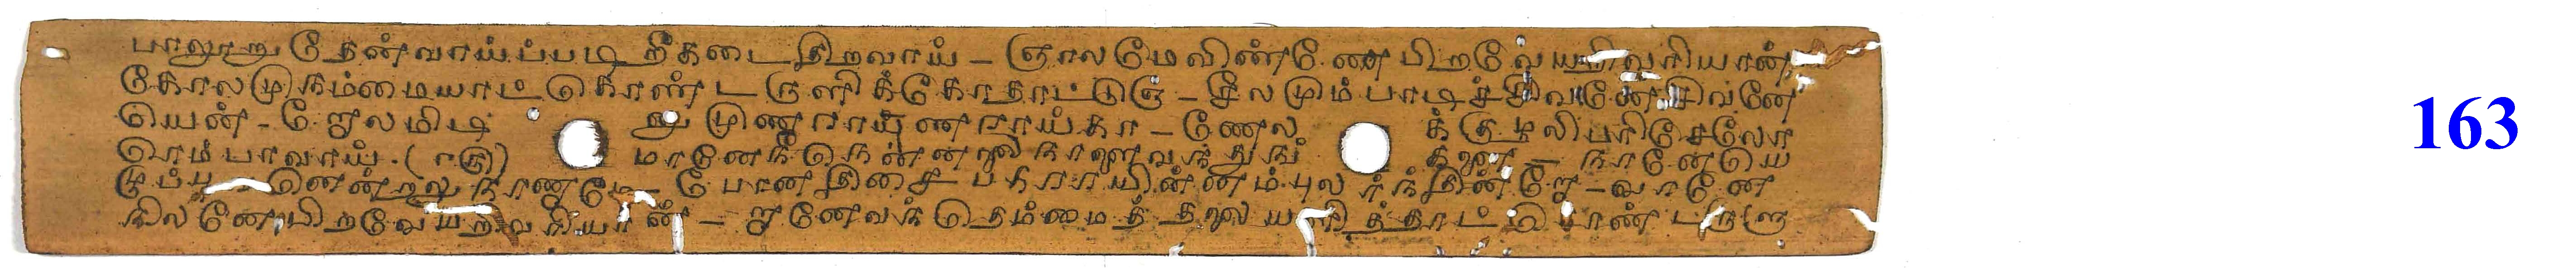 பாலூறு தேன்வாய்ப்படிறீ கடைதிறவாய் - ஞாலமேவிண்ணே பிறவேயறிவரியான்
கோலமுநம்மையாட்கொண்டருளிக்கோதாட்டுஞ் - சீலமும்பாடிச்சிவனே சிவனே
யென் - றோலமிடி னுமுணராயுணராய்கா - ணேல க்குழலிபரிசேலோ
ரெம்பாவாய். (௫) மானேநீ நென்னலை நாளைவந்துங் களை - நானே யெ
ழுப்பு னென்றலு நாணாமே - போன திசை பகராயின்னம் புலர்ந்தின்றோ - வானே
நிலனே பிறவேயறிவரியான் - றானேவந் தெம்மைத் தலையளித்தாட்கொண்டருளு
163